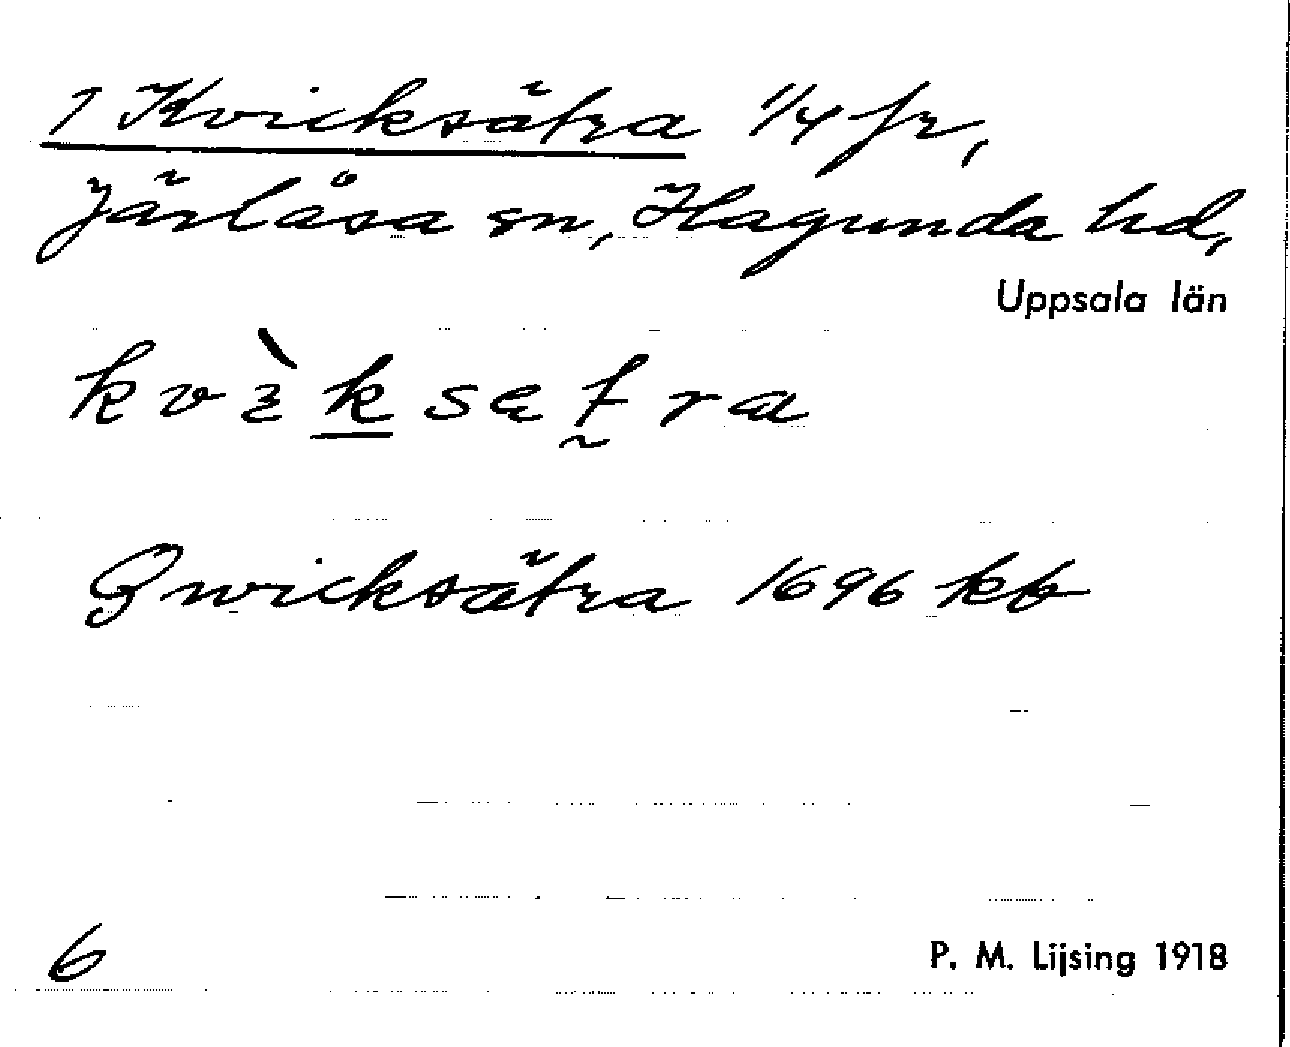 1 Kvicksätra 1/4 fr,
Järlåsa sn, Hagunda hd,
Uppsala län
kvìksætra
Qwicksätra 1696 kb
6
P. M. Lijsing 1918